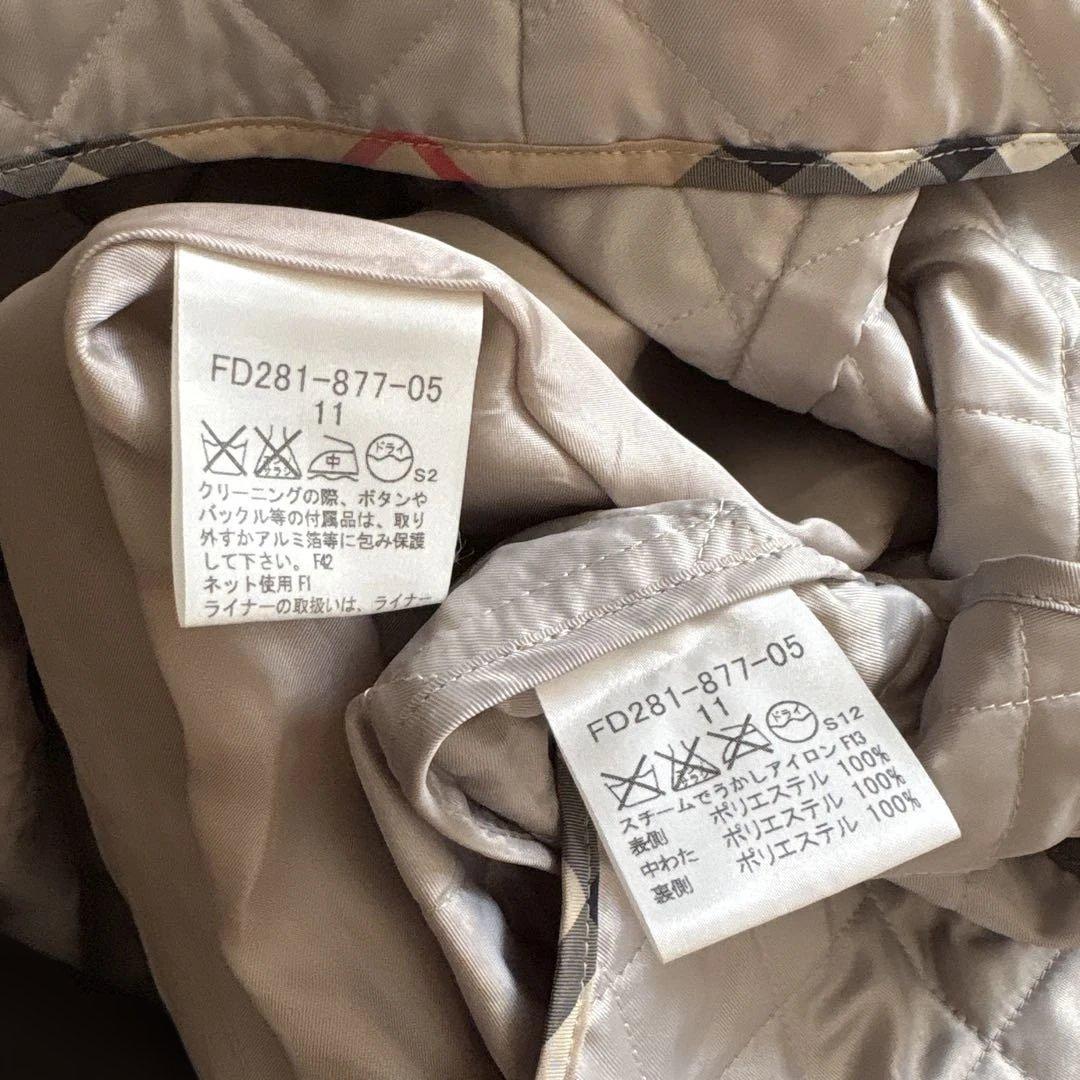 FD281-877-05
11
中 ドライ
S2
クリーニングの際、ボタンや
バックル等の付属品は、取り
外すかアルミ箔等に包み保護
して下さい。F42
ネット使用 F1
ライナーの取扱いは、ライナー
FD281-877-05
11
ドライ
S12
スチームでうかしアイロン F13
表側 ポリエステル 100%
中わた ポリエステル 100%
裏側 ポリエステル 100%